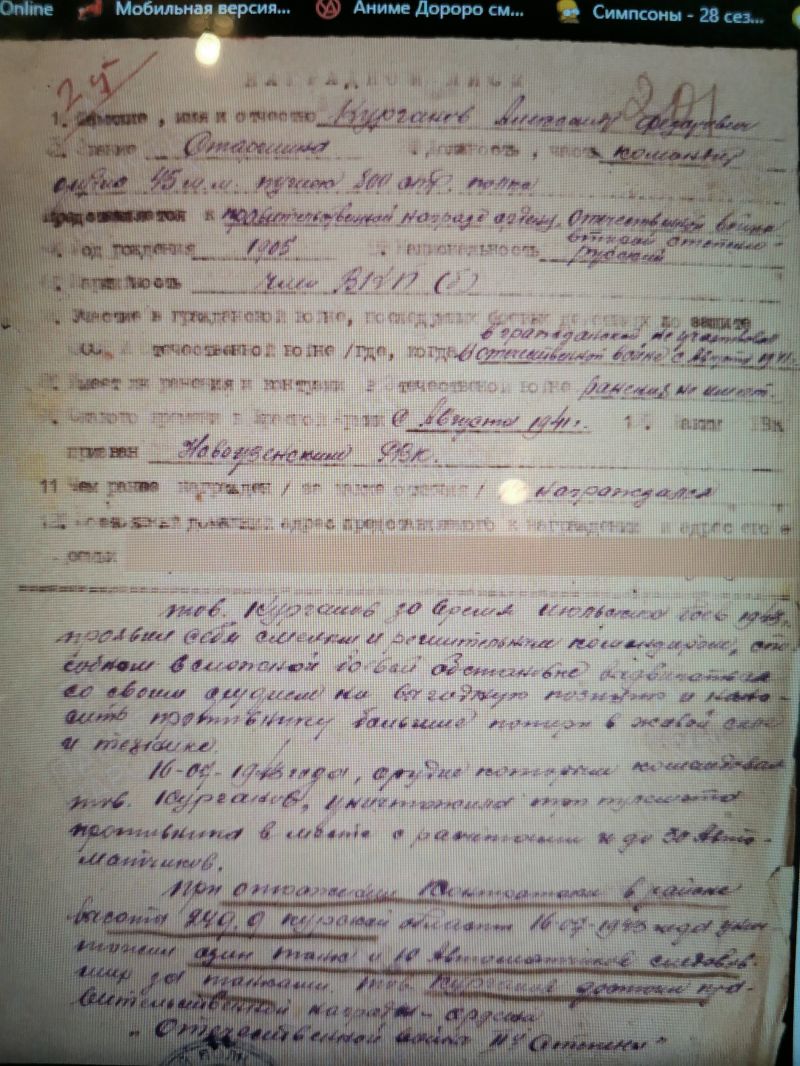 Online Мобильная версия... Аниме Дороро см... Симпсоны - 28 сез...
НАГРАДНОЙ ЛИСТ
1. Фамилия, имя и отчество Курганов Федорович
2. Звание Старшина 3. Должность, часть командир
орудия 45 м.м. пушек 800 стр. полка
Представляется к правительственной награде ордену Отечественной войны
второй степени
4. Год рождения 1905 5. Национальность русский
6. Партийность член ВКП(б)
7. Участие в гражданской войне, последующих боевых действиях по защите
в гражданской не участвовал
СССР и отечественной войне /где, когда/ в отечественной войне с Августа 1941г.
8. Имеет ли ранения и контузии в Отечественной войне ранения не имеет.
9. С какого времени в Красной Армии с Августа 1941г. 10. Каким РВК
призван Новоузенским РВК.
11 Чем ранее награжден /за какие отличия/ награждался
12. домашний адрес представляемого к награждению и адрес его
семьи
тов. Курганов за время июльских боев 1943г.
проявил себя смелым и решительным командиром, спо-
собном в сложной боевой обстановке выдвигаться
со своим орудием на выгодную позицию и нано-
сить противнику большие потери в живой силе
и технике.
16-07-1943 года, орудие которым командовал
тов. Курганов, уничтожила три пулемета
противника в месте с расчетами и до 30 Авто-
матчиков.
При отражении Контратаки в районе
высота 249.9 Курской области 16-07-1943 года унич-
тожил один танк и 10 Автоматчиков следовав-
ших за танками. тов. Курганов достоин пра-
вительственной награды - ордена
"Отечественной война II Степени"